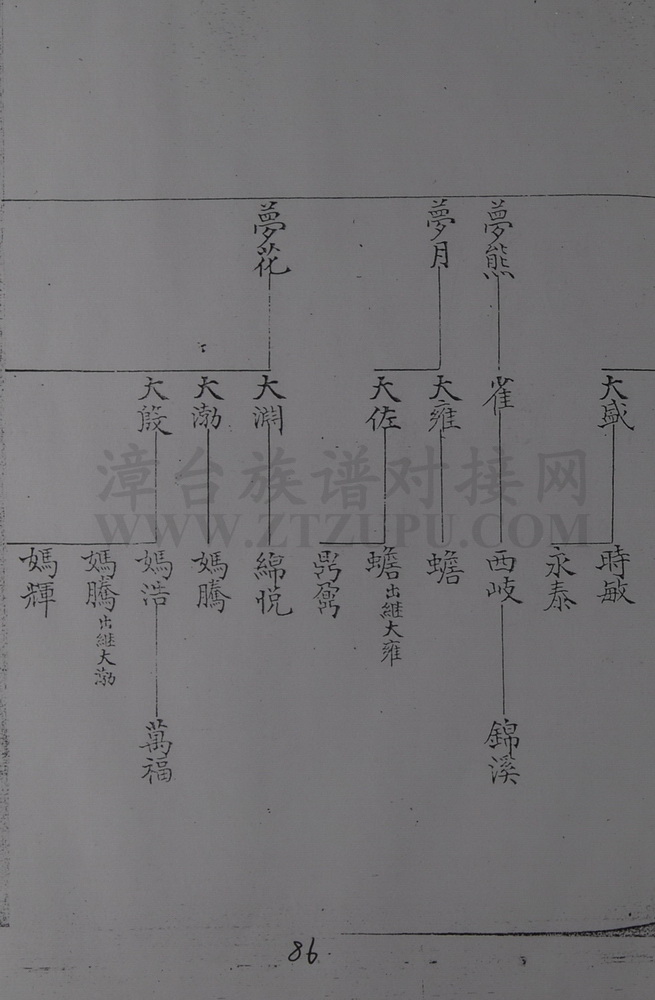 夢熊
夢月
夢花
大盛
雀
大雍
大佐
大渊
大渤
大殷
時敏
永泰
西岐
蟾
蟾出繼大雍
綿悦
媽騰
媽浩
媽騰出繼大渤
媽輝
錦溪
萬福
漳台族谱对接网
WWW.ZTZUPU.COM
86